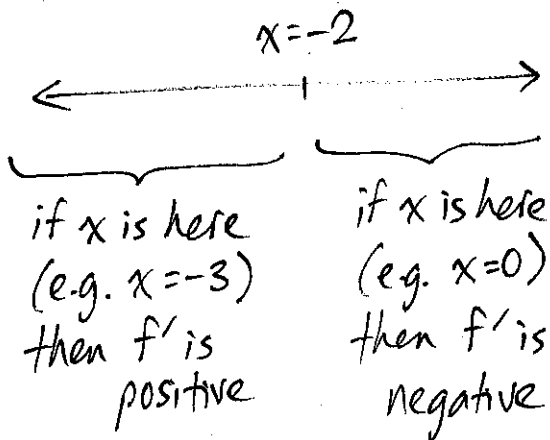 x=-2
if x is here
(e.g. x=-3)
then f' is
positive
if x is here
(e.g. x=0)
then f' is
negative